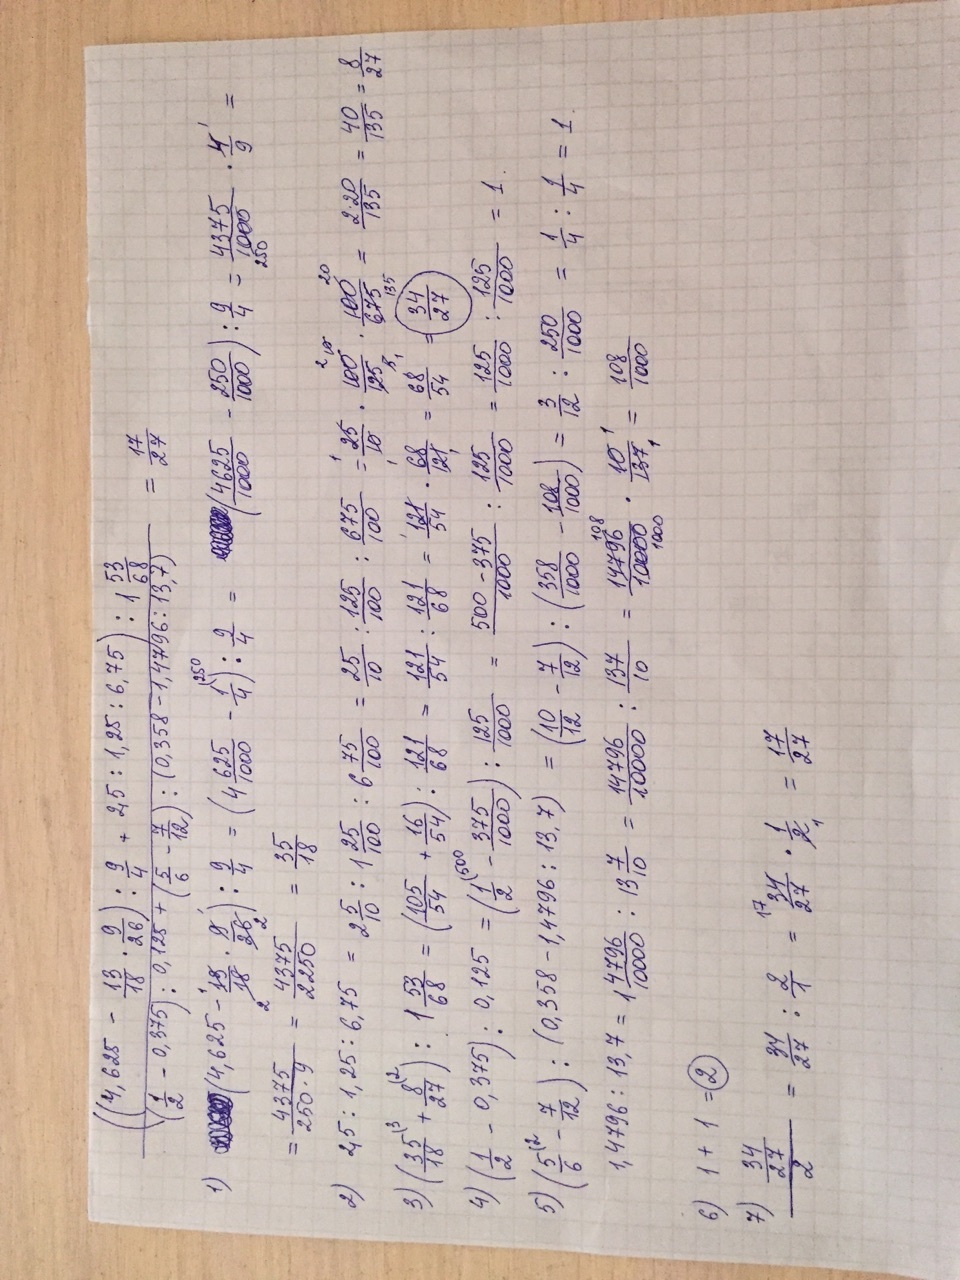 ((4,625 - 13/18 · 9/26) : 9/4 + 2,5 : 1,25 : 6,75) : 1 53/68
(1/2 - 0,375) : 0,125 + (5/6 - 7/12) : (0,358 - 1,4796 : 13,7) = 17/27
1) (4,625 - 13/18 · 9/26) : 9/4 = (4 625/1000 - 1/4) : 9/4 = (4625/1000 - 250/1000) : 9/4 = 4375/1000 · 4/9 =
= 4375/250·9 = 4375/2250 = 35/18
2) 2,5 : 1,25 : 6,75 = 2 5/10 : 1 25/100 : 6 75/100 = 25/10 : 125/100 : 675/100 = 25/10 · 100/125 · 100/675 = 2·20/135 = 40/135 = 8/27
3) (35/18 + 8/27) : 1 53/68 = (105/54 + 16/54) : 121/68 = 121/54 : 121/68 = 121/54 · 68/121 = 68/54 = 34/27
4) (1/2 - 0,375) : 0,125 = (1/2 - 375/1000) : 125/1000 = 500-375/1000 : 125/1000 = 125/1000 : 125/1000 = 1.
5) (5/6 - 7/12) : (0,358 - 1,4796 : 13,7) = (10/12 - 7/12) : (358/1000 - 108/1000) = 3/12 : 250/1000 = 1/4 : 1/4 = 1.
1,4796 : 13,7 = 1 4796/10000 : 13 7/10 = 14796/10000 : 137/10 = 14796/10000 · 10/137 = 108/1000
6) 1 + 1 = 2
7) 34/27 / 2 = 34/27 : 2/1 = 34/27 · 1/2 = 17/27